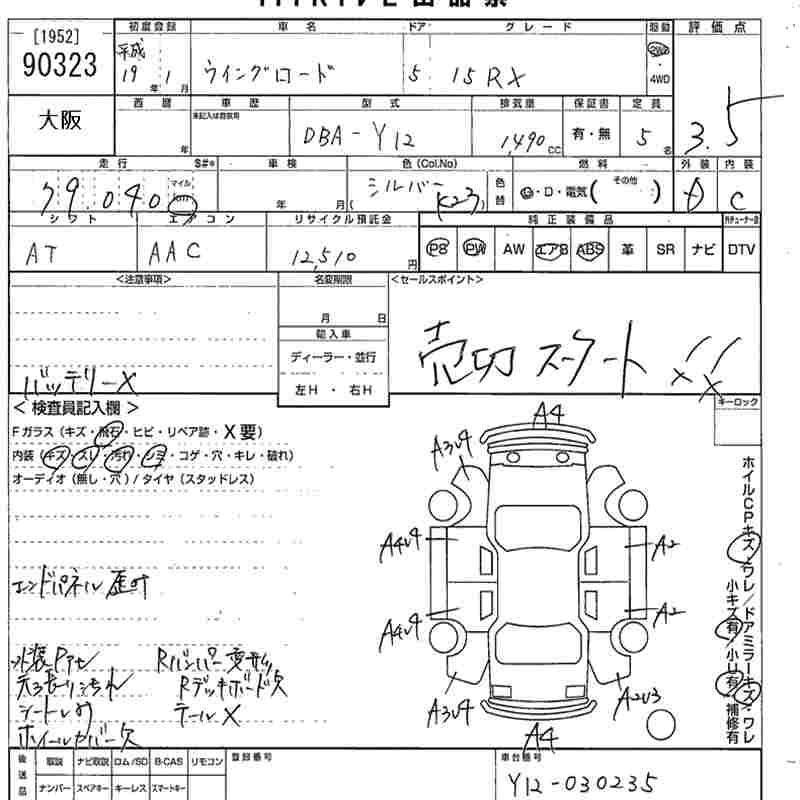 [1952]
90323
初度登録 車名 ドア グレード 駆動 評価点
平成
19年 1月 ウイングロード 5 15RX 2WD 4WD
3.5
大阪
西暦 車歴 型式 排気量 保証書 定員
年 未記入は自家用 DBA-Y12 1,490cc 有・無 5名
走行 S#* 車検 色(Col.No) 燃料 外装 内装
79,040 マイル km 年 月 シルバー (K23) 色替 G・D・電気( その他 ) D C
シフト エアコン リサイクル預託金 純正装備品
AT AAC 12,510円 PS PW AW エアB ABS 革 SR ナビ DTV
<注意事項> 名変期限 <セールスポイント>
月 日
輸入車
ディーラー・並行
左H ・ 右H
売切 スタート !!
バッテリーX
キーロック
<検査員記入欄>
Fガラス(キズ・飛石・ヒビ・リペア跡・X要)
内装(キズ・スレ・汚れ・シミ・コゲ・穴・キレ・破れ)
オーディオ(無し・穴)/タイヤ(スタッドレス)
A4
A3U4
A4U4 A2
A4U4 A2
A3U4 A2U3
A4
ホイルCPキズ・ワレ/ドアミラーキズ・ワレ
小キズ有/小U有/補修有
エンドパネル歪
Rバンパー変
Rデッキボード欠
テールX
ホイルカバー欠
後送品 取説 ナビ取説 ロム/SD B-CAS リモコン 登録番号 車台番号
ナンバー スペアキー キーレス スマートキー Y12-030235